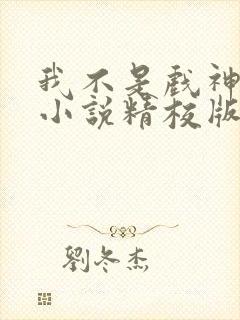 我不是戏神
小说精校版
劉冬杰